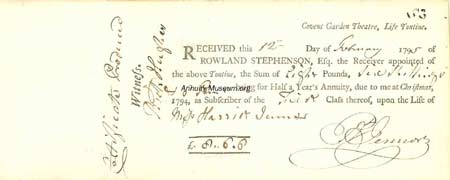 Covent Garden Theatre, Life Tontine.
RECEIVED this 12th Day of February 1795 of
ROWLAND STEPHENSON, Esq. the Receiver appointed of
the above Tontine, the Sum of Eight Pounds, Six Shillings
& Six Pence being for Half a Year's Annuity, due to me at Christmas,
1794, as Subscriber of the Class thereof, upon the Life of
Mrs Harriet
£ 8..6..6
Witness,
Certificate Produced
AntiquesMuseum.org